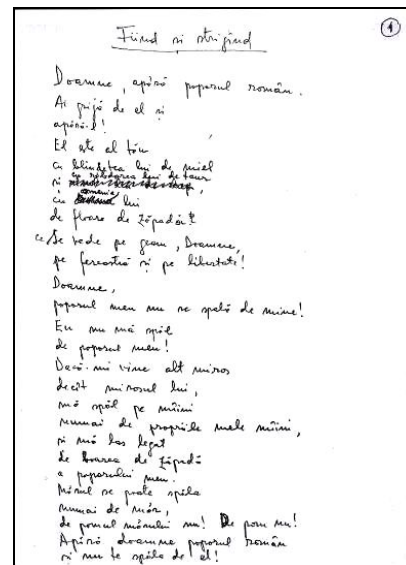 1
Fiind și strigînd
Doamne, apără poporul român.
Ai grijă de el și
apără-l!
El este al tău
cu blîndețea lui de miel
cu răbdarea lui de taur
și
cu omenia lui
de floare de zăpadă!
ce Se vede pe geam, Doamne,
pe fereastră și pe libertate!
Doamne,
poporul meu nu se spală de mine!
Eu nu mă spăl
de poporul meu!
Dacă-mi vine alt miros
decît mirosul lui,
mă spăl pe mîini
numai de propriile mele mîini,
și mă las legat
de boarea de zăpadă
a poporului meu.
Mărul se poate spăla
numai de măr,
de pomul mărului nu! De pom nu!
Apără doamne poporul român
și nu te spăla de el!